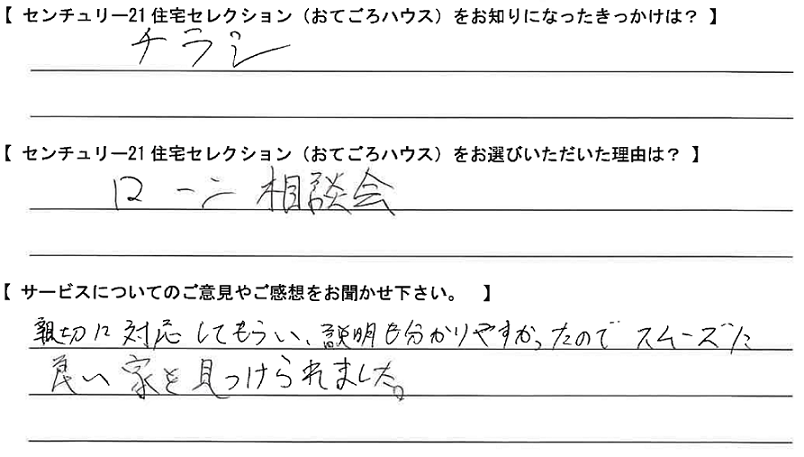 【 センチュリー21 住宅セレクション（おてごろハウス）をお知りになったきっかけは？ 】
チラシ
【 センチュリー21 住宅セレクション（おてごろハウス）をお選びいただいた理由は？ 】
ローン 相談会
【 サービスについてのご意見やご感想をお聞かせ下さい。 】
親切に対応してもらい、説明も分かりやすかったのでスムーズに
良い家を見つけられました。